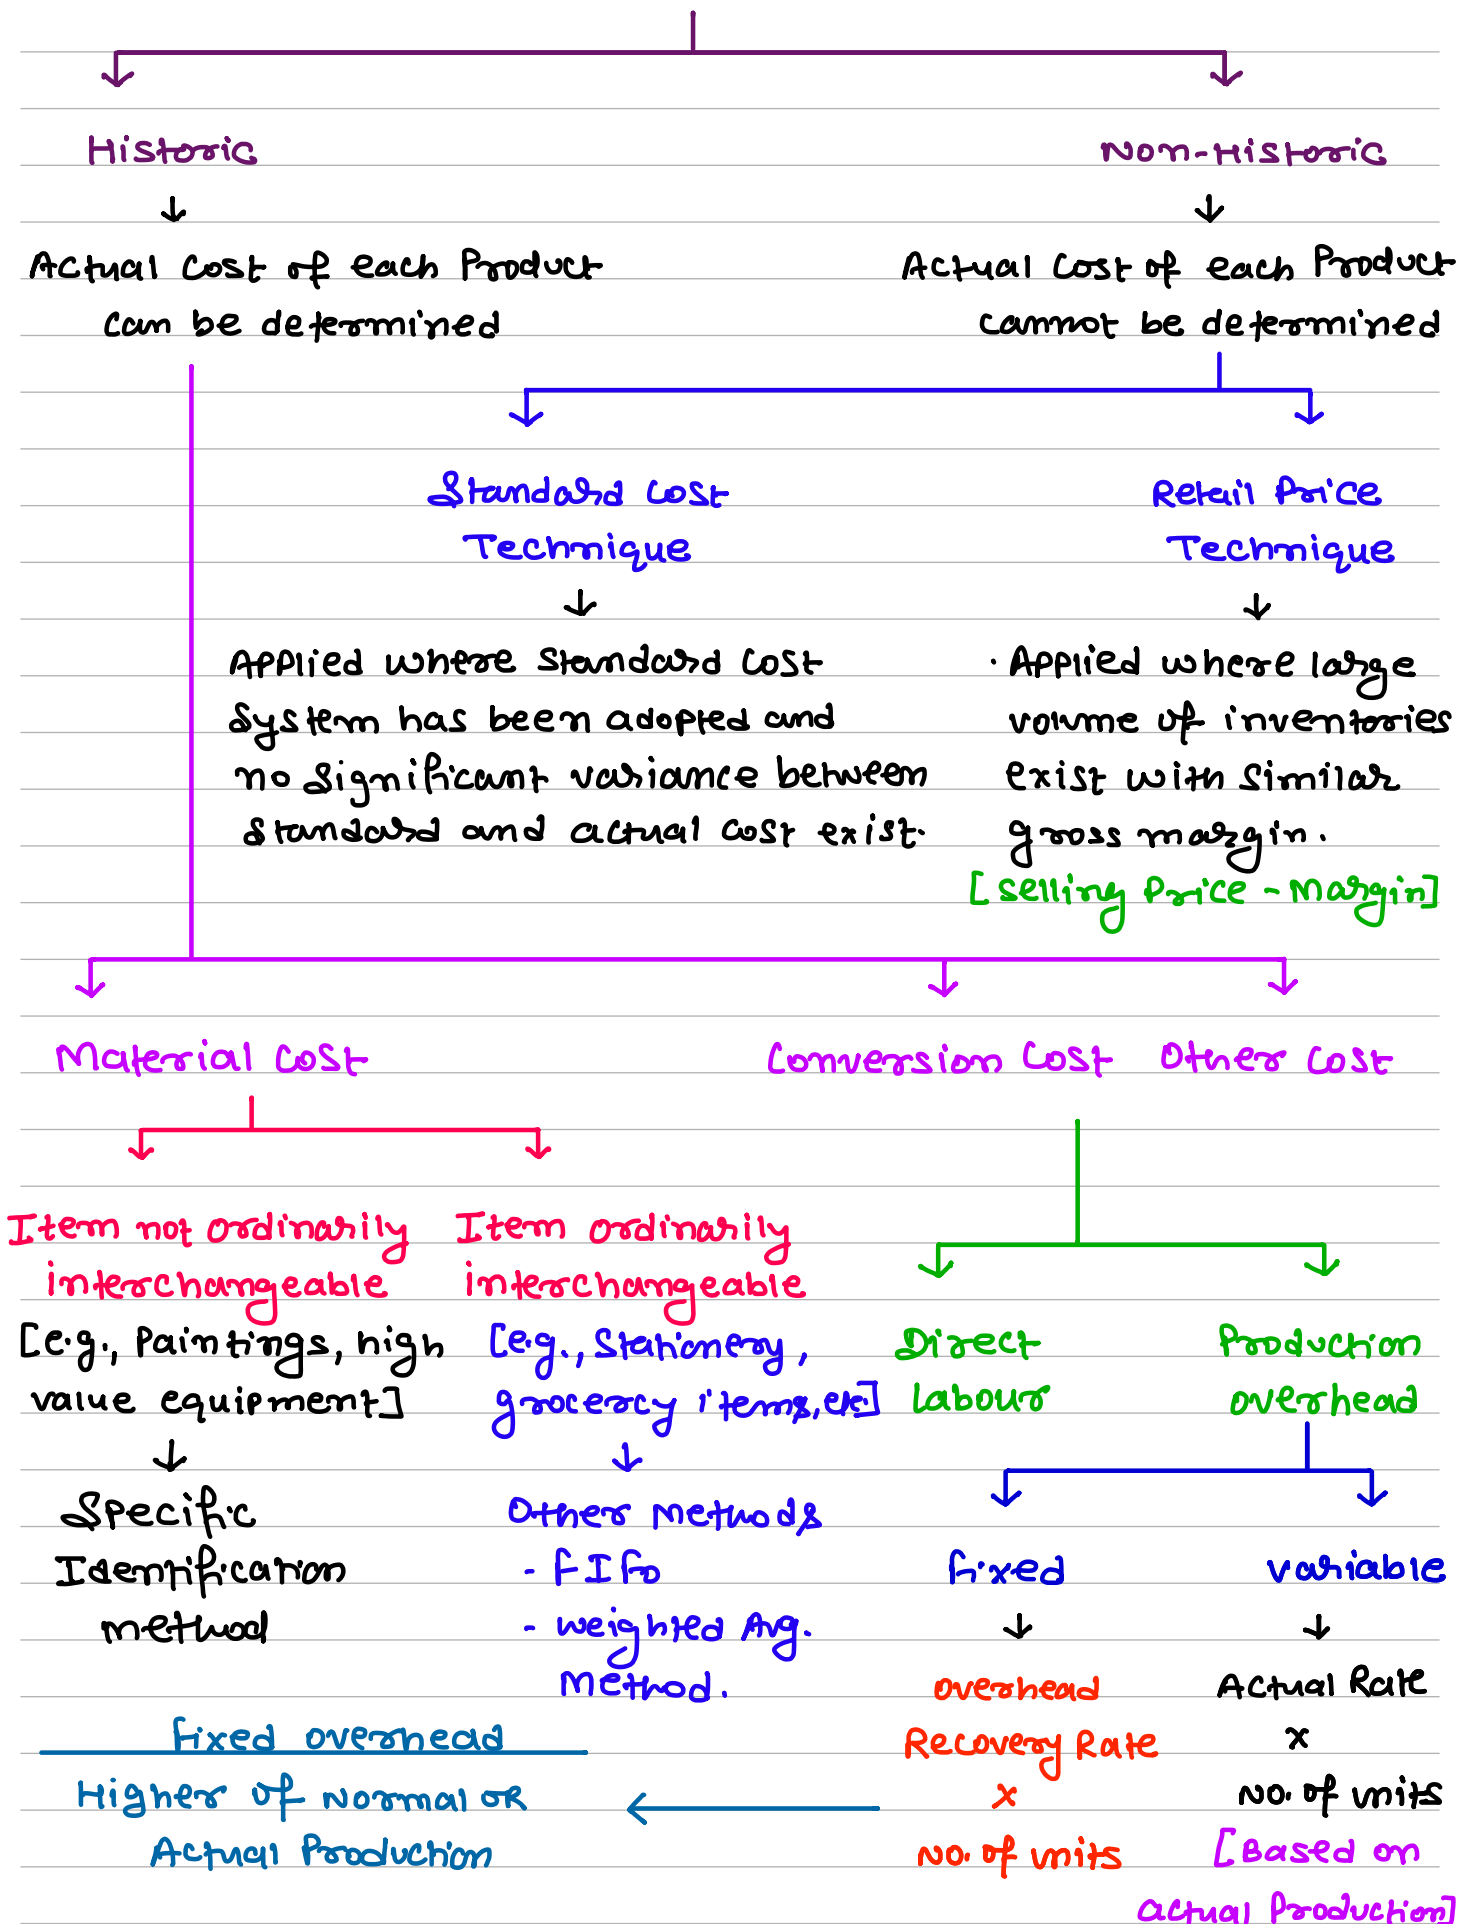 Historic
Non-Historic
Actual Cost of each Product
can be determined
Actual Cost of each Product
cannot be determined
Standard Cost
Technique
Retail Price
Technique
Applied where Standard Cost
System has been adopted and
no Significant variance between
Standard and actual cost exist.
· Applied where large
volume of inventories
exist with Similar
gross margin.
[Selling Price - Margin]
Material Cost
Conversion Cost
Other Cost
Item not ordinarily
interchangeable
[e.g., Paintings, high
value equipment]
Specific
Identification
method
Item ordinarily
interchangeable
[e.g., Stationery,
grocercy items, etc.]
Other Methods
- FIFO
- weighted Avg.
Method.
Direct
Labour
Production
overhead
Fixed
variable
overhead
Recovery Rate
x
No. of units
Actual Rate
x
No. of units
[Based on
actual Production]
Fixed overhead
Higher of Normal OR
Actual Production